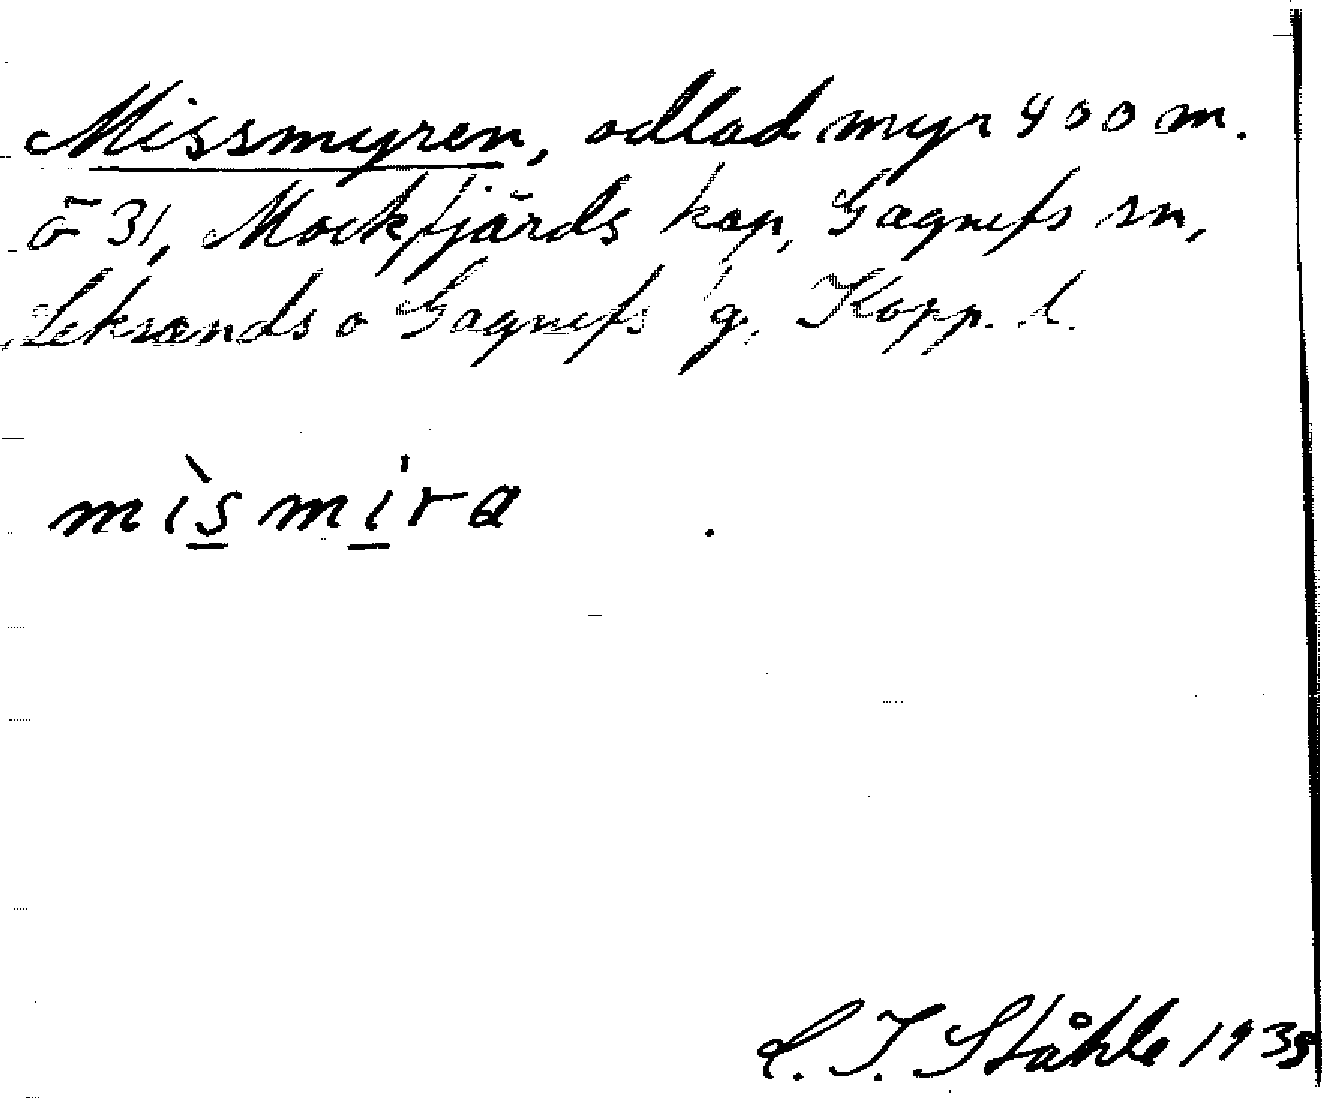 Missmyren, odlad myr 400 m.
ö 31, Mockfjärds kap, Gagnefs sn,
Leksands o Gagnefs g, Kopp. l.
mìsmi̍ra
C. I. Ståhle 1935